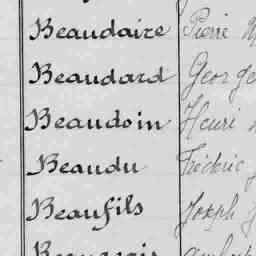 Beaudaire Pierre
Beaudard George
Beaudoin Henri
Beaudu Frédéric
Beaufils Joseph